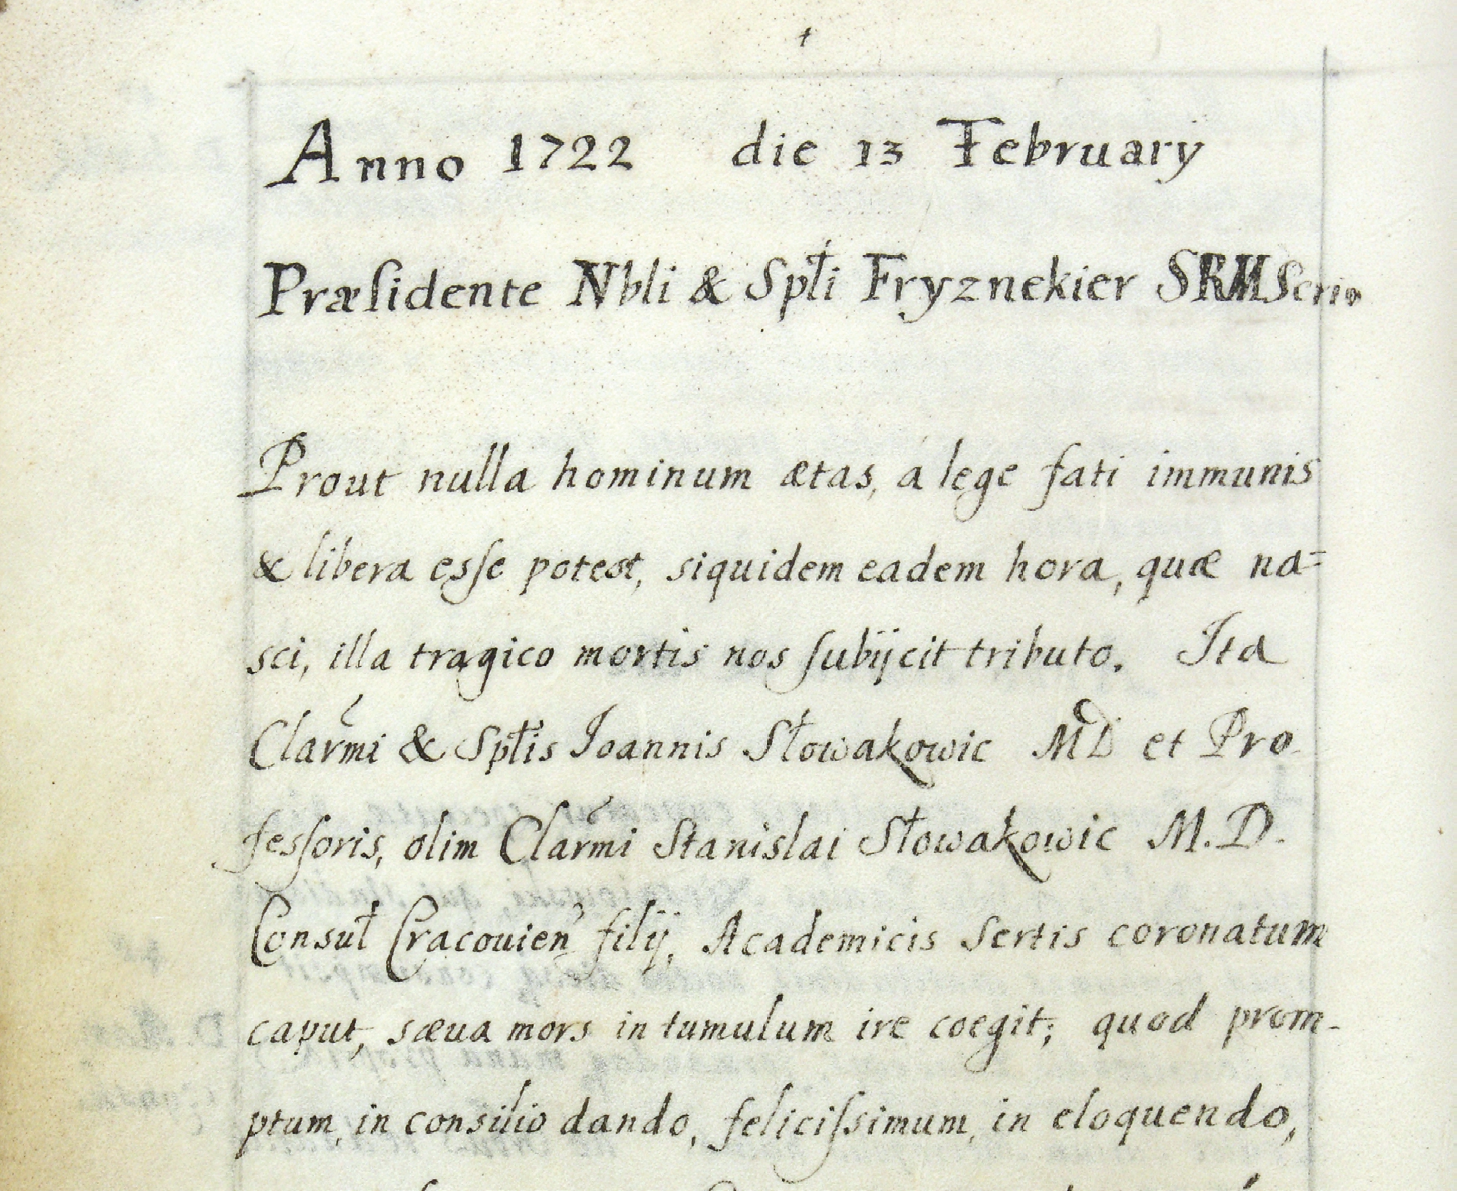 Anno 1722 die 13 February
Præsidente Nbli & Sptłi Fryznekier SRM Scrio
Prout nulla hominum ætas, a lege fati immunis
& libera esse potest, siquidem eadem hora, quæ na=
sci, illa tragico mortis nos subijcit tributo. Ita
Clarmi & Sptłis Ioannis Słowakowic MD et Pro
fessoris, olim Clarmi Stanislai Słowakowic M.D.
Consuł Cracouien filij, Academicis Sertis coronatum
caput, sæua mors in tumulum ire coegit; quod prom-
ptum, in consilio dando, felicissimum, in eloquendo,